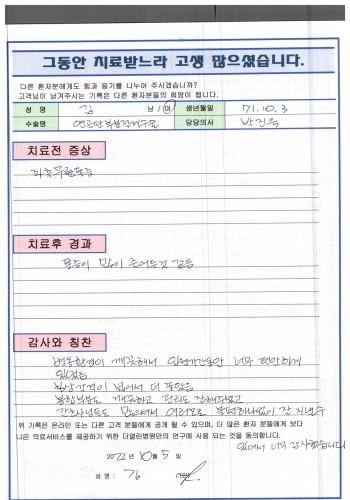 그동안 치료받느라 고생 많으셨습니다.
다른 환자분에게도 힘과 용기를 나누어 주시겠습니까?
고객님이 남겨주시는 기록은 다른 환자분들의 희망이 됩니다.
성 명 김 남 / 여 생년월일 71.10.3
수술명 연골판부분절제수술 담당의사 박진욱
치료전 증상
좌측무릎통증
치료후 경과
통증이 많이 줄어든것 같음
감사와 칭찬
병동환경이 깨끗해서 입원기간동안 너무 편안하게
있었음
간호사님들도 많아서 여러모로 불편하나없이 잘 지낼수
위 기록은 온라인 또는 다른 고객분들에게 공개 될 수 있으며, 더 많은 환자 분들에게 보다
나은 의료서비스를 제공하기 위한 더열린병원만의 연구에 사용 되는 것을 동의합니다.
있어서 너무 감사했습니다
2022 년 10 월 5 일
성 명 : 김